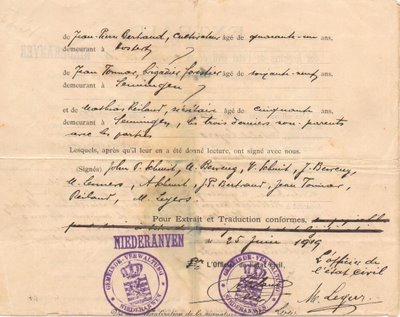 de Jean-Pierre Bertrand, Cultivateur âgé de quarante-un ans,
demeurant à Oostert
de Jean Tonnar, brigadier forestier âgé de soixante-neuf ans,
demeurant à Senningen
et de Mathias Reiland, secrétaire âgé de cinquante ans,
demeurant à Senningen, les trois derniers non-parents
avec les parties
Lesquels, après qu'il leur en a été donné lecture, ont signé avec nous.
(Signés) John P. Schmit, A. Berweng, Schmit, J. Berweng,
A. Schmit, J.P. Bertrand, Jean Tonnar,
Reiland, M. Leyers
Pour Extrait et Traduction conformes,
NIEDERANVEN
25 Juin 1919
L'Officier de l'état civil,
L'officier de
l'état civil
M. Leyers
GEMEINDE-VERWALTUNG
NIEDERANVEN
GEMEINDE-VERWALTUNG
NIEDERANVEN